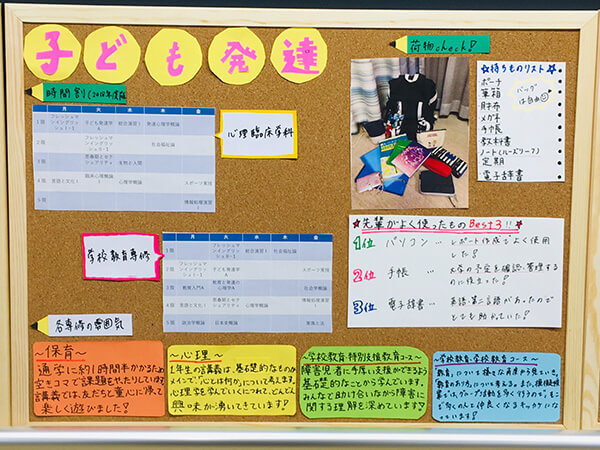 子ども発達
時間割
月 火 水 木 金
1限 フレッシュマンイングリッシュⅠ-1 子ども発達学A 総合演習Ⅰ 発達心理学概論
2限 フレッシュマンイングリッシュⅡ-1 社会福祉論
3限 思春期とセクシュアリティ 生物と人間
4限 言語と文化Ⅰ 臨床心理学概論 心理学概論 スポーツ実技
5限 情報処理演習Ⅰ
心理臨床学科
学校教育専修
月 火 水 木 金
1限 フレッシュマンイングリッシュⅡ-1 総合演習Ⅰ 社会福祉論
2限 フレッシュマンイングリッシュⅠ-1 子ども発達学A スポーツ実技
3限 教育入門A 教育と発達の心理学A 社会学概論
4限 言語と文化Ⅰ 思春期とセクシュアリティ 情報処理演習Ⅰ
5限 政治学概論 日本史概論 家族と法
各専修の雰囲気
荷物check!
☆持ちものリスト☆
ポーチ
筆箱
財布
メガネ
手帳
教科書
ノート(ルーズリーフ)
定期
電子辞書
バッグは自由
☆先輩がよく使ったものBest3!!☆
1位 パソコン… レポート作成でよく使用した!
2位 手帳 … 大学の予定を確認・管理するのに役立った!
3位 電子辞書… 英語・第二言語があったのでとても助かっていた!
~保育~
通学に約1時間半かかるため
空きコマで課題をやったりしています
講義では、友だちと童心に帰って
楽しく遊びました!
~心理~
1年生の講義は、基礎的なものが
メインで、"心とは何か"について考えます。
心理学を学んでいくにつれて、どんどん
興味が湧いてきています!
~学校教育・特別支援教育コース~
障害児者に今度い支援ができるよう
基礎的なことから学んでいます。
みんなで助け合いながら障害に
関する理解を深めています!
~学校教育・学校教育コース~
"教育"について様々な角度から見ていき、
"教育のあり方"について考える。また、
グループ活動を多く行うので、
仲良くなるキッカケに
なっています!